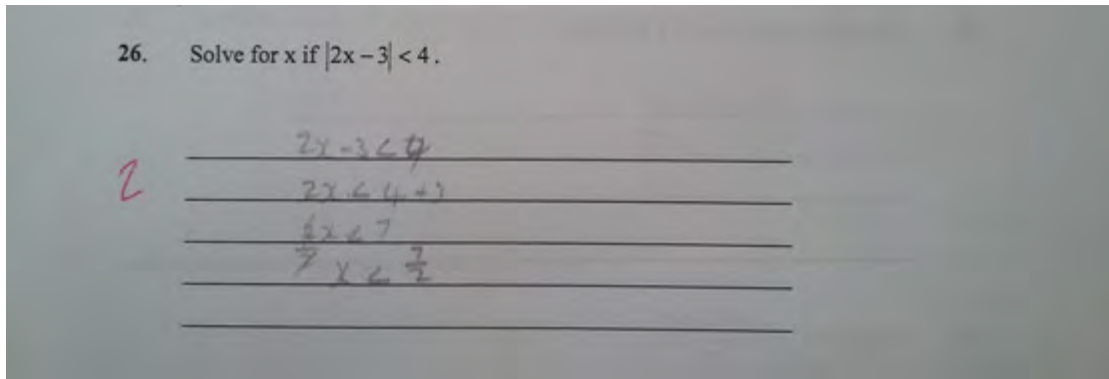 26. Solve for x if |2x – 3| < 4.
2x - 3 < 4
2
2x < 4 + 3
2x < 7
2
x < 7/2